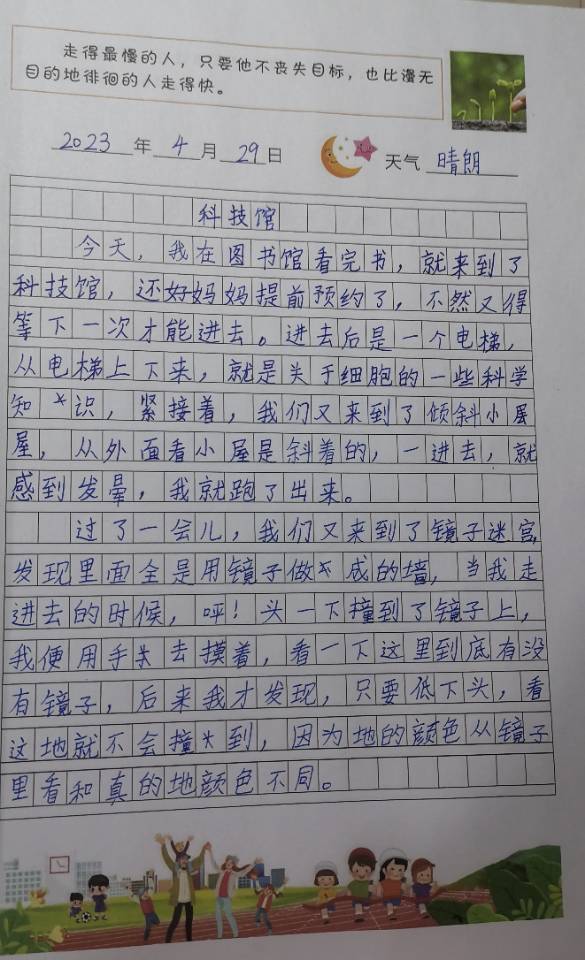 走得最慢的人，只要他不丧失目标，也比漫无
目的地徘徊的人走得快。
2023年4月29日 天气 晴朗
科技馆
今天，我在图书馆看完书，就来到了
科技馆，还好妈妈提前预约了，不然又得
等下一次才能进去。进去后是一个电梯，
从电梯上下来，就是关于细胞的一些科学
知识，紧接着，我们又来到了倾斜小屋
屋，从外面看小屋是斜着的，一进去，就
感到发晕，我就跑了出来。
过了一会儿，我们又来到了镜子迷宫，
发现里面全是用镜子做成的墙，当我走
进去的时候，呯！头一下撞到了镜子上，
我便用手去摸着，看一下这里到底有没
有镜子，后来我才发现，只要低下头，看
这地就不会撞到，因为地的颜色从镜子
里看和真的地颜色不同。